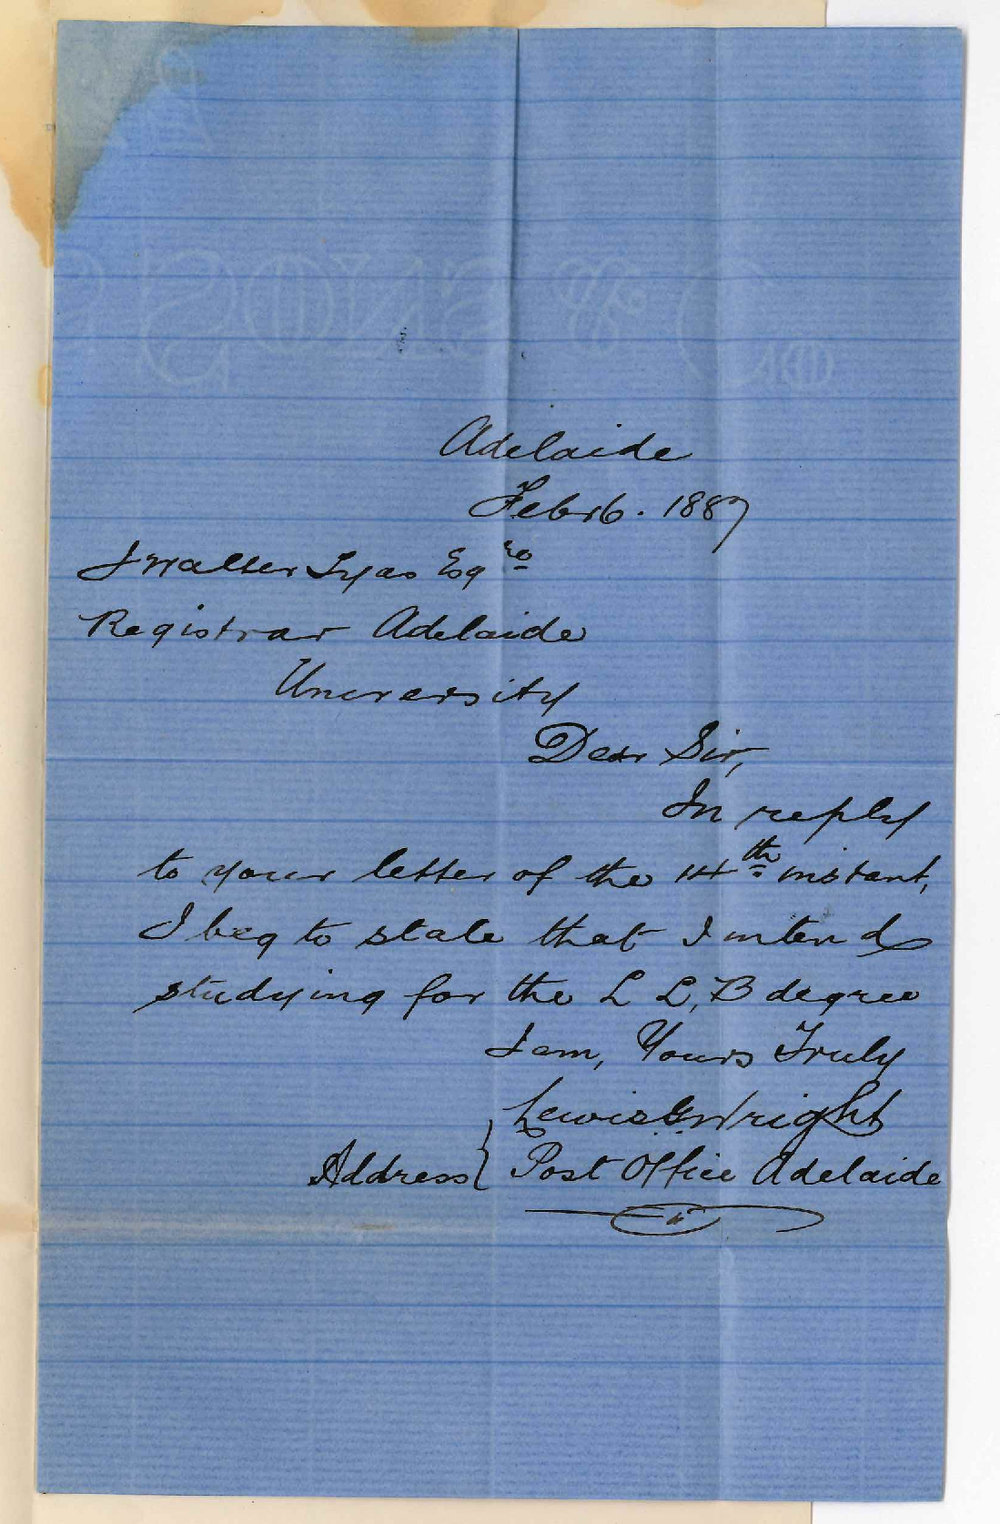 SONS & Co
Adelaide
Feb 16. 1887
J Walter Tyas Esqre
Registrar Adelaide
University
Dear Sir,
In reply
to your letter of the 14th instant,
I beg to state that I intend
studying for the L L, B degree
I am, Yours Truly
Lewis G Wright
Address { Post Office Adelaide